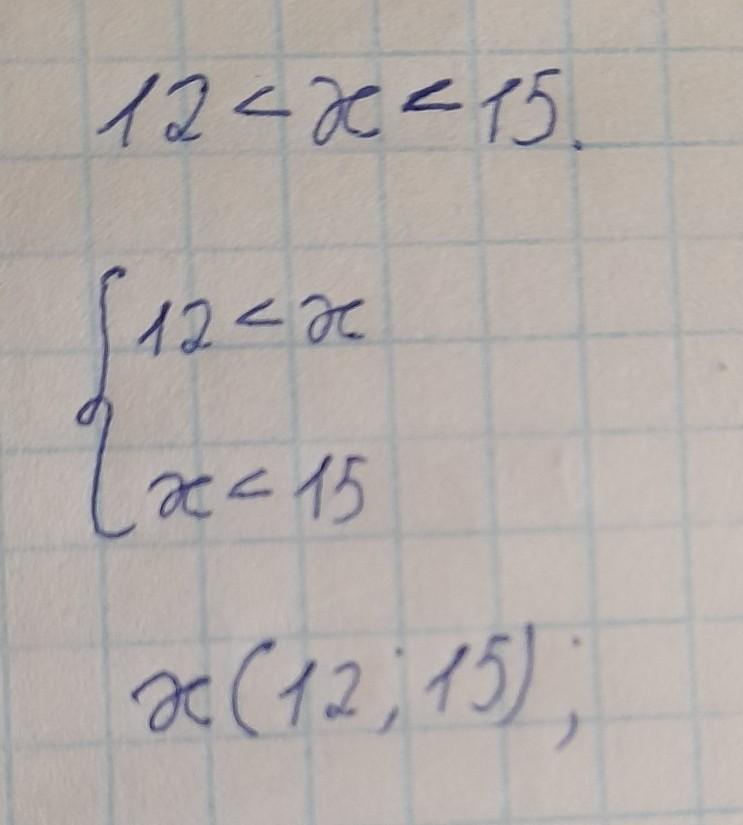 12 < x < 15.
{ 12 < x
x < 15
x (12; 15);